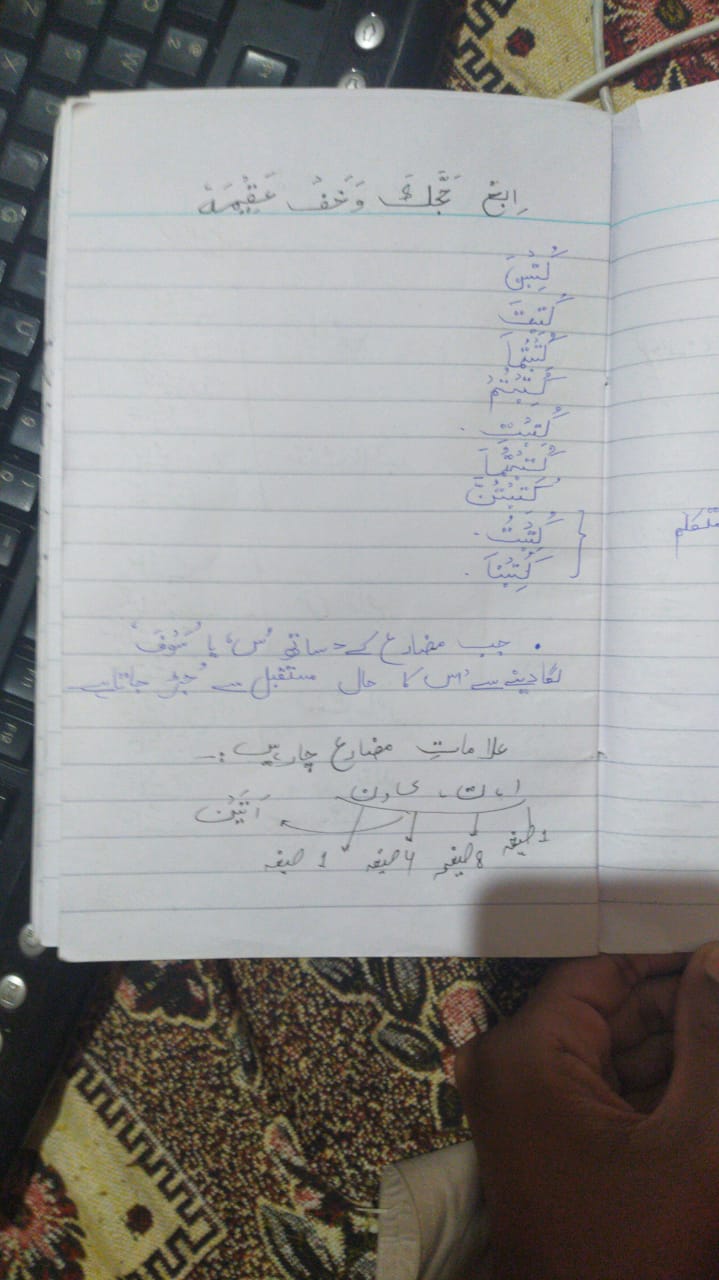 اِبْغِ حَجَّكَ وَخَفْ عَقِيْمَهٗ
كَتَبْنَ
كَتَبْتَ
كَتَبْتُمَا
كَتَبْتُمْ
كَتَبْتِ
كَتَبْتُمَا
كَتَبْتُنَّ
كَتَبْتُ
كَتَبْنَا
جب مضارع کے ساتھ 'س' یا 'سَوْفَ'
لگا دینے سے اس کا حال مستقبل سے جڑ جاتا ہے
علاماتِ مضارع چار ہیں :۔
ا، ت، ی اور ن
اَتَیْنَ
1 صیغہ 8 صیغے 4 صیغے 1 صیغہ
متکلم